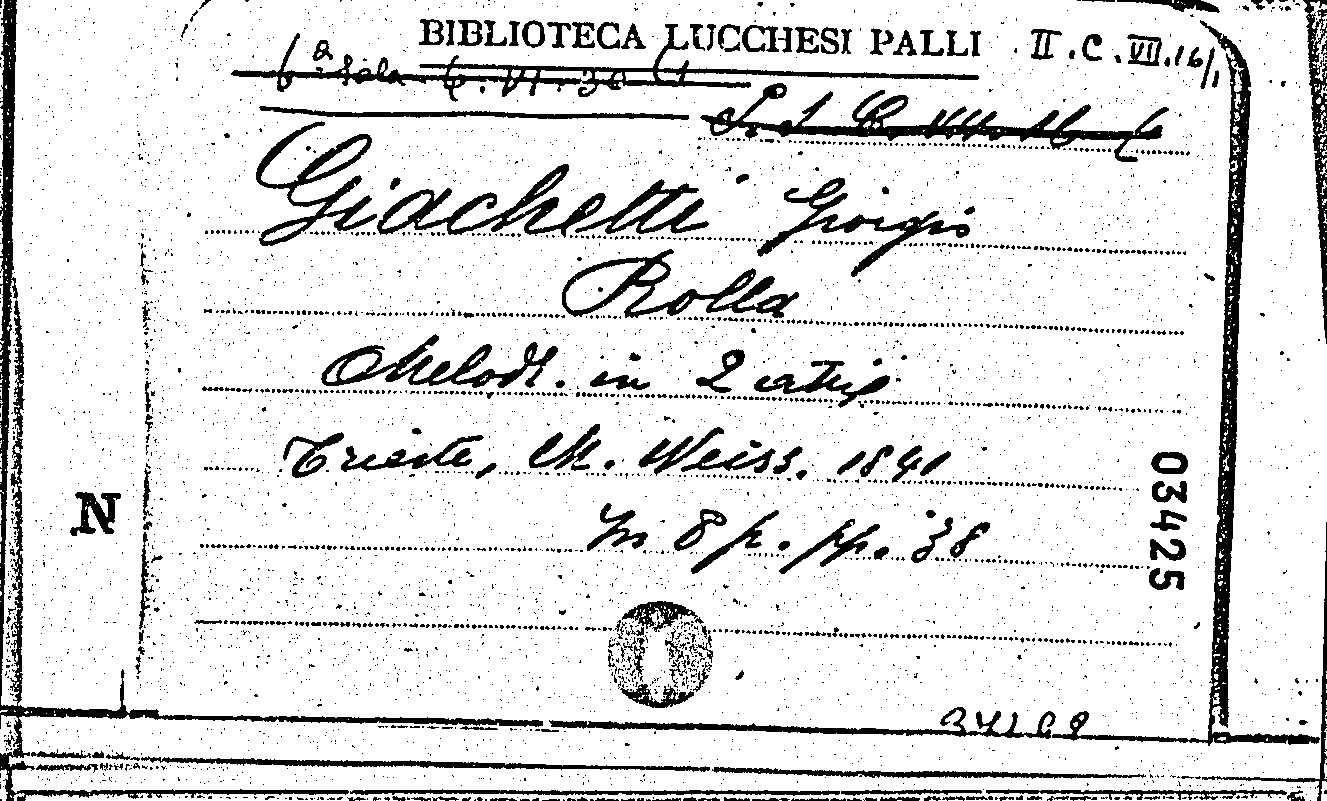 BIBLIOTECA LUCCHESI PALLI II.C.VII.16/1
6ª Sala 6. VI. 30
Giachetti Giorgio
Rolla
Melodr. in 2 atti
Trieste, M. Weiss. 1841
In 8 p. pp. 38
N
03425